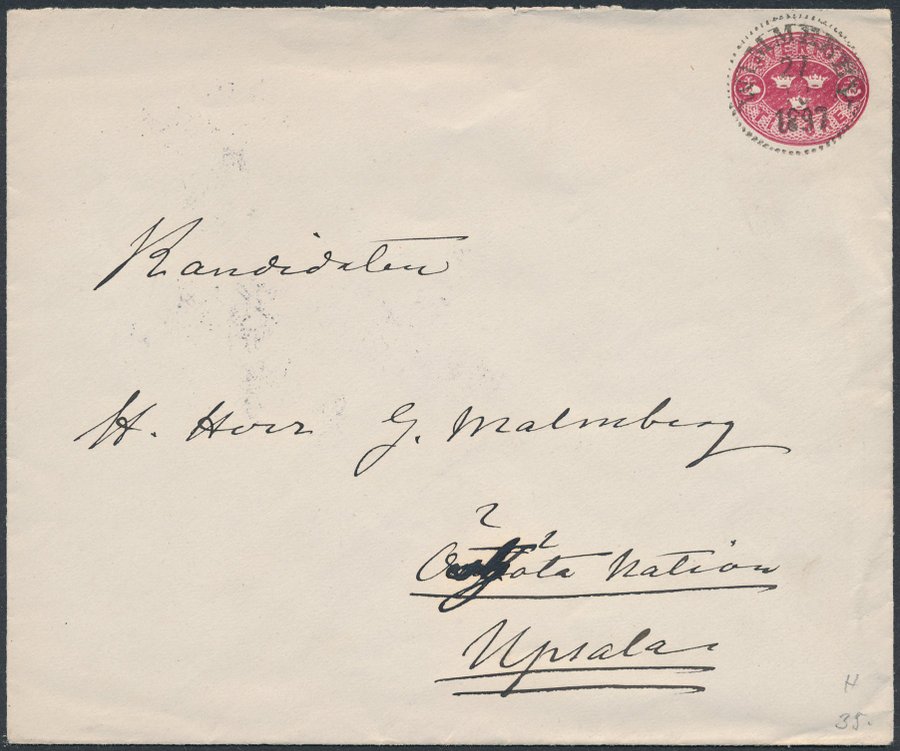 21
1897
Kandidaten
H. Herr G. Malmberg
Östgöta Nation
Upsala
H
35.